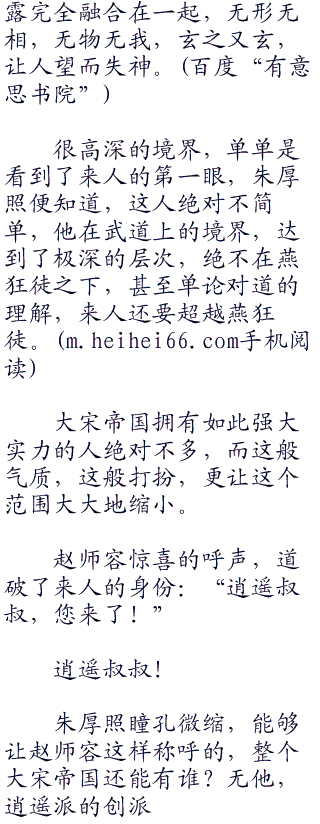 露完全融合在一起，无形无
相，无物无我，玄之又玄，
让人望而失神。(百度“有意
思书院”)
很高深的境界，单单是
看到了来人的第一眼，朱厚
照便知道，这人绝对不简
单，他在武道上的境界，达
到了极深的层次，绝不在燕
狂徒之下，甚至单论对道的
理解，来人还要超越燕狂
徒。(m.heihei66.com手机阅
读)
大宋帝国拥有如此强大
实力的人绝对不多，而这般
气质，这般打扮，更让这个
范围大大地缩小。
赵师容惊喜的呼声，道
破了来人的身份：“逍遥叔
叔，您来了！”
逍遥叔叔！
朱厚照瞳孔微缩，能够
让赵师容这样称呼的，整个
大宋帝国还能有谁？无他，
逍遥派的创派